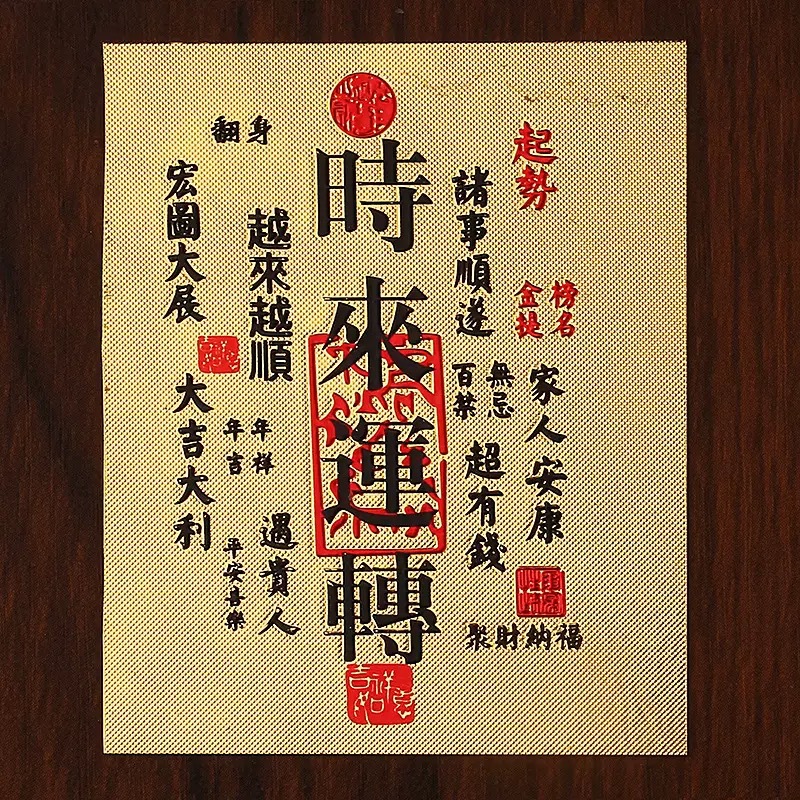 起勢
金榜
提名
家人安康
諸事順遂
百無
禁忌
超有錢
聚財納福
時來運轉
越來越順
年年
吉祥
遇貴人
平安喜樂
翻身
宏圖大展
大吉大利
吉祥如意